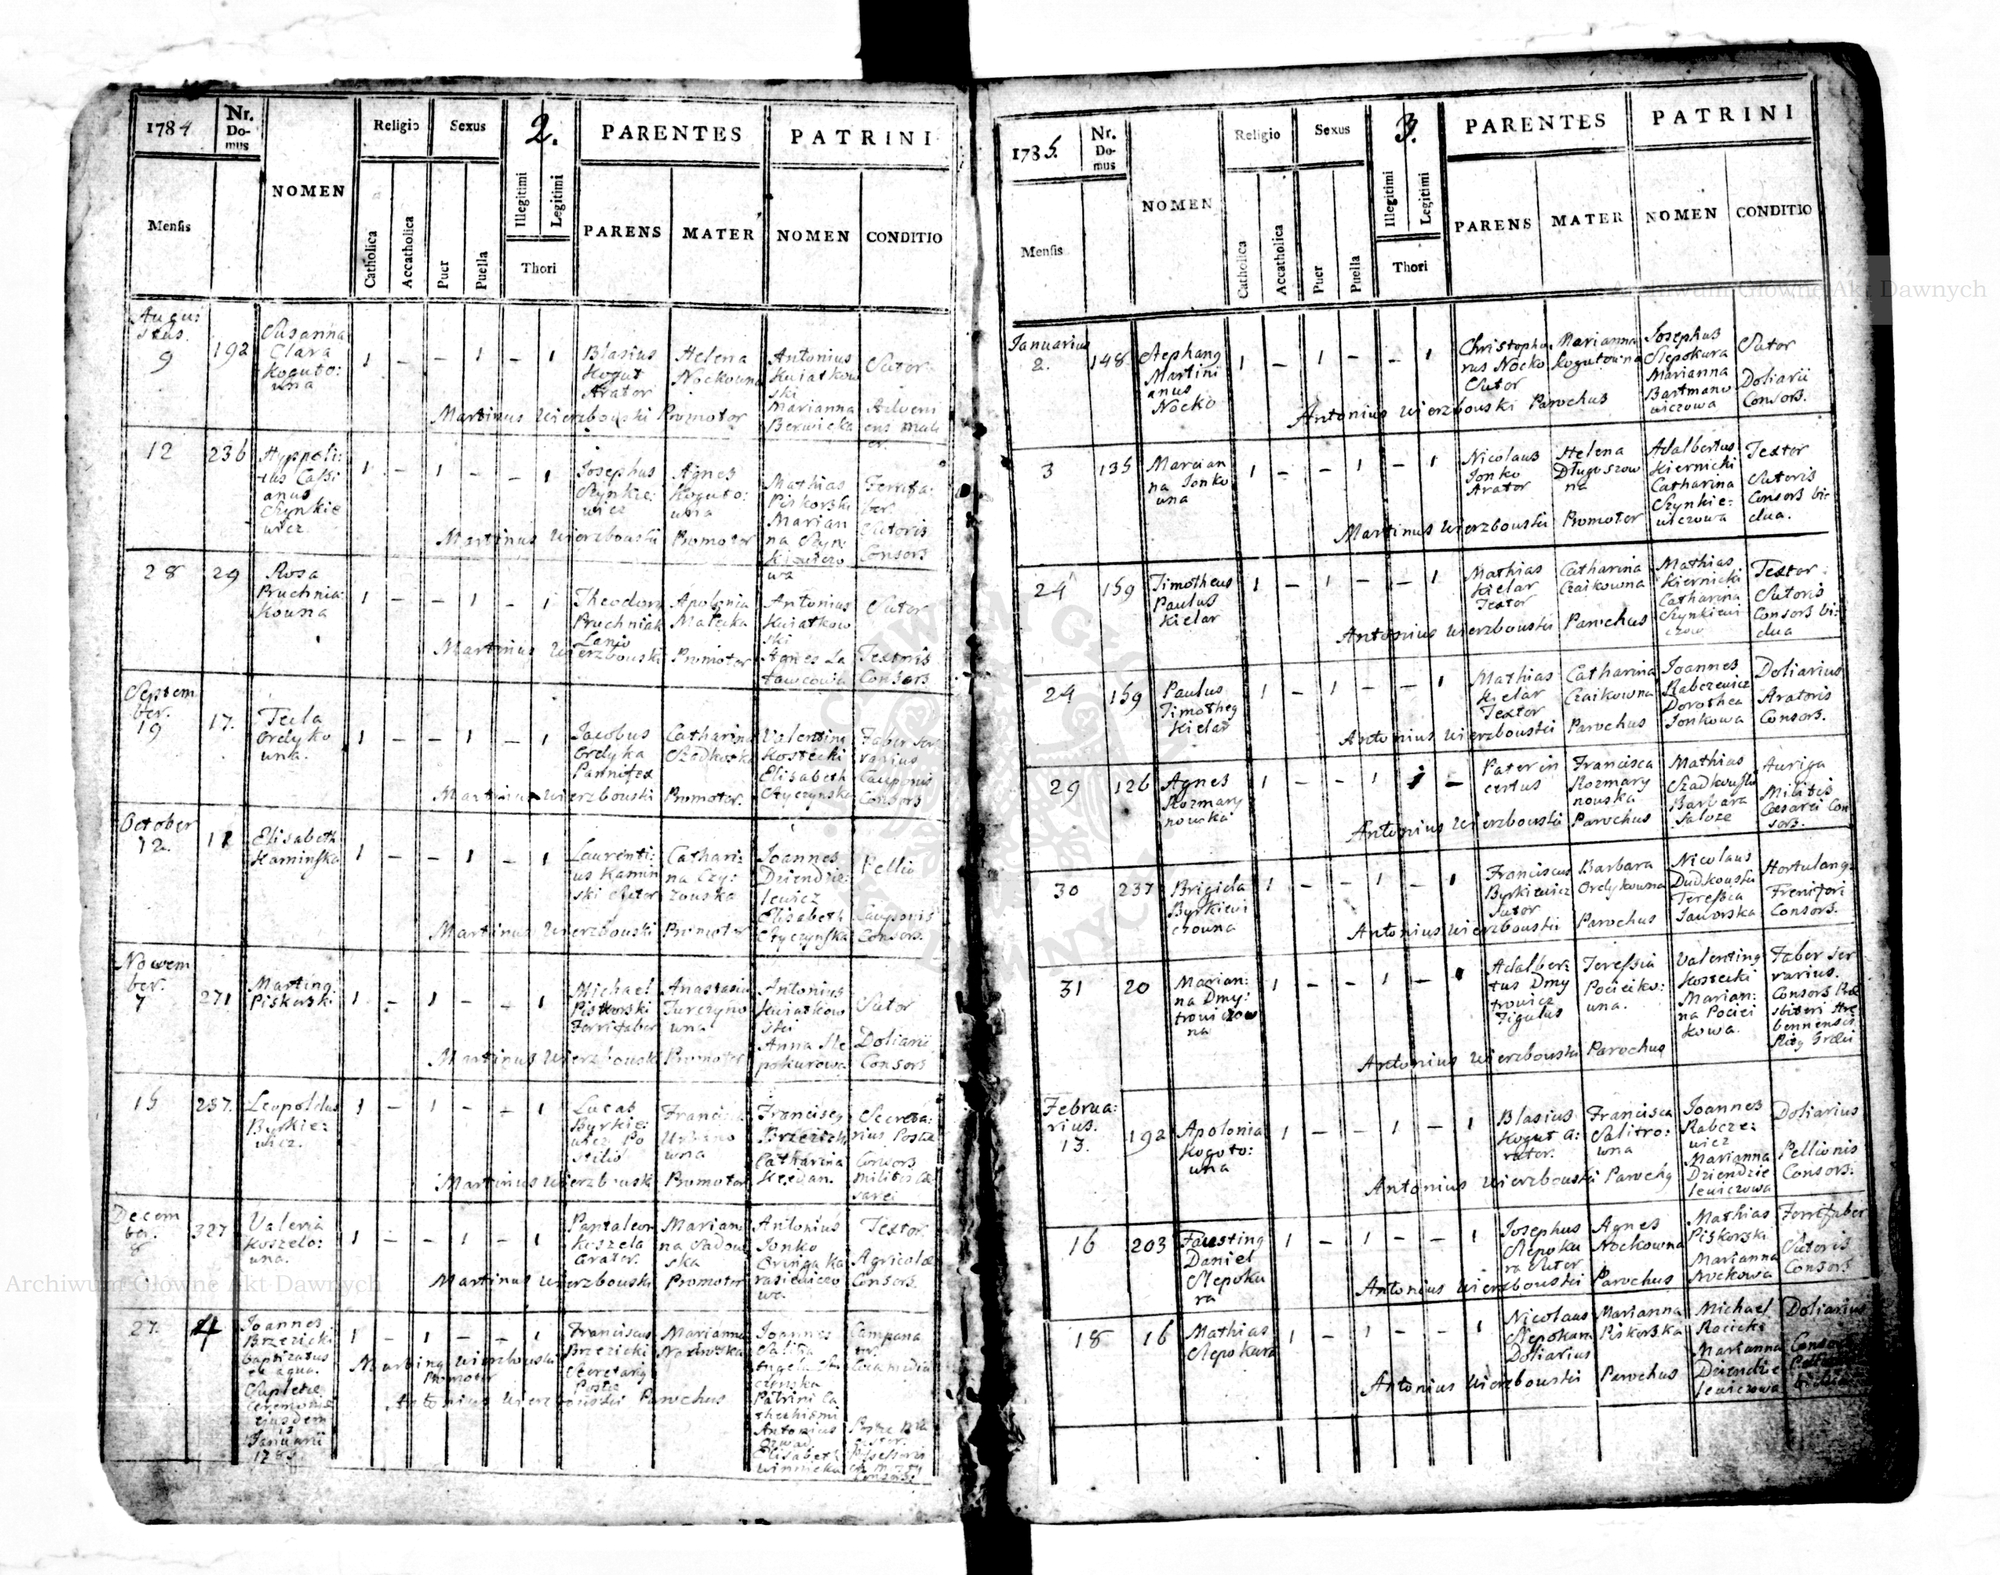 1784
Nr. Domus
NOMEN
Religio
Sexus
2.
PARENTES
PATRINI
Mensis
Catholica
Accatholica
Puer
Puella
Illegitimi
Legitimi
Thori
PARENS
MATER
NOMEN
CONDITIO
Augustus.
9 192 Susanna Clara Koguto: wna 1 – – 1 – 1 Blasius Kogut Arator Helena Nockowna Antonius Kwiatkowski Sutor
Marianna Berwicka
Martinus Wierzbowski Promotor
12 236 Hyppoli: tus Cassianus Szynkiewicz 1 – 1 – – 1 Josephus Szynkie: wicz Agnes Koguto: wna Mathias Piskorski Ferrifa: ber.
Marianna Szynkiewiczowa Sutoris Consors
Martinus Wierzbowski Promotor
28 29 Rosa Pruchnia: kowna 1 – – 1 – 1 Theodorus Pruchniak Lanio Apolonia Malecka Antonius Kwiatkowski Sutor
Agnes Latawcowa Textoris Consors
Martinus Wierzbowski Promotor
September.
19 17. Tecla Ordykowna. 1 – – 1 – 1 Jacobus Ordyka Catharina Szadkoska Valentinus Kostecki Faber Serrarius
Elisabeth Styczynska Cauponis Consors
Martinus Wierzbowski Promotor.
October
12. Elisabeth Kaminska 1 – – 1 – 1 Laurenti: us Kaminski Sutor Catharina Czy: zowska Joannes Dziendzie: lewicz Pellio
Elisabeth Styczynska Cauponis Consors.
Martinus Wierzbowski Promotor
November.
7 271 Martinus Piskorski 1 – 1 – – 1 Michael Piskorski Ferrifaber Anastasia Jurczyno wna Antonius Kwiatkowski Sutor
Anna Slepokurowa Doliarii Consors
Martinus Wierzbowski Promotor
15 237. Leopoldus Byrkie: wicz. 1 – 1 – – 1 Lucas Byrkie: wicz Franciscus Secreta: rius Postae
Catharina Consors militis Caesarei
Martinus Wierzbowski Promotor
December.
8 327 Valeria Koszelo: wna. 1 – – 1 – 1 Pantaleon Koszela Arator. Marianna Sadowska Antonius Jonko Textor
Agricolae Consors.
Martinus Wierzbowski Promotor
27. 4 Joannes Brzezicki baptizatus ex aqua. 1 – 1 – – 1 Franciscus Brzezicki Secretarius Postae Marianna Joannes
Martinus Wierzbowski Promotor
Januarii
Antonius Wierzbowski Parochus
Antonius
Elisabeth Winnicka
1785.
Nr. Domus
NOMEN
Religio
Sexus
3.
PARENTES
PATRINI
Mensis
Catholica
Accatholica
Puer
Puella
Illegitimi
Legitimi
Thori
PARENS
MATER
NOMEN
CONDITIO
Januarius
2. 148 Stephanus Martinianus Nocko 1 – 1 – – 1 Christophorus Nocko Sutor Marianna Kogutowna Josephus Slepokura Sutor
Marianna Bartmanowiczowa Doliarii Consors.
Antonius Wierzbowski Parochus
3 135 Marcianna Jonkowna 1 – – 1 – 1 Nicolaus Jonko Arator Helena Długoszowna Adalbertus Kiernicki Textor
Catharina Szynkie: wiczowa Sutoris Consors bi: dua.
Martinus Wierzbowski Promotor
24 159 Timotheus Paulus Kielar 1 – 1 – – 1 Mathias Kielar Textor Catharina Czaikowna Mathias Kiernicki Textor
Catharina Szynkiewiczow Sutoris Consors bi: dua
Antonius Wierzbowski Parochus
24 159 Paulus Timotheus Kielar 1 – 1 – – 1 Mathias Kielar Textor Catharina Czaikowna Joannes Rabczewicz Doliarius
Dorothea Jonkowa Aratoris Consors.
Antonius Wierzbowski Parochus
29 126 Agnes Rozmarynowska 1 – – 1 1 – Pater incertus Francisca Rozmarynowska Mathias Szadkowski Auriga
Barbara Saloze Militis Caesarei Consors.
Antonius Wierzbowski Parochus
30 237 Brigida Byrkiewiczowna 1 – – 1 – 1 Franciscus Byrkiewicz Sutor Barbara Ordykowna Nicolaus Dudkowski Hortulanus
Teressia Jaworska Consors.
Antonius Wierzbowski Parochus
31 20 Marian: na Dmytrowiczowna 1 – – 1 – 1 Adalber: tus Dmytrowicz Figulus Teressia Pocieiko: wna. Valentinus Kostecki Faber Serrarius.
Marian: na Pocieikowa.
Antonius Wierzbowski Parochus
Februa: rius.
13. 192 Apolonia Kogoto: wna 1 – – 1 – 1 Blasius Kogut A: rator. Francisca Salitro: wna Joannes Rabcze: wicz Doliarius
Marianna Dziendzielewiczowa Pellionis Consors.
Antonius Wierzbowski Parochus
16 203 Faustinus Daniel Slepokura 1 – 1 – – 1 Josephus Slepokura Sutor Agnes Nockowna Mathias Piskorski Ferrifaber
Marianna Nockowa Sutoris Consors
Antonius Wierzbowski Parochus
18 16 Mathias Slepokura 1 – 1 – – 1 Nicolaus Slepokura Doliarius Marianna Piskorska Michael Racicki Doliarius
Marianna Dziendzielewiczowa
Antonius Wierzbowski Parochus
Archiwum Główne Akt Dawnych
Archiwum Główne Akt Dawnych